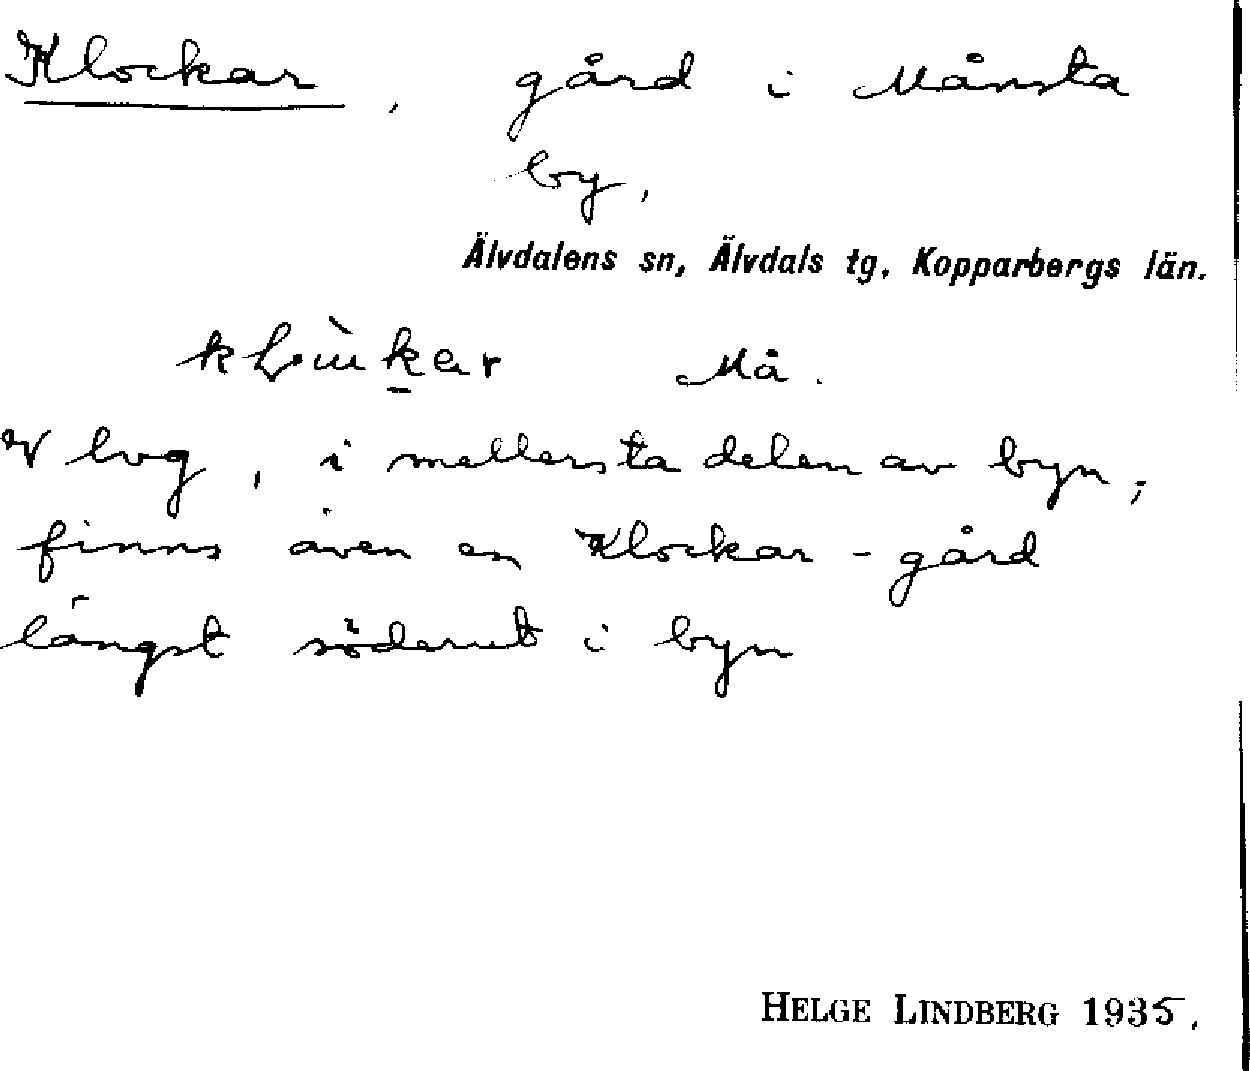 Klockar, gård i Månsta
by,
Älvdalens sn, Älvdals tg, Kopparbergs län.
Må.
V lvg, i mellersta delen av byn;
finns även en Klockar-gård
längst söderut i byn
HELGE LINDBERG 1935.